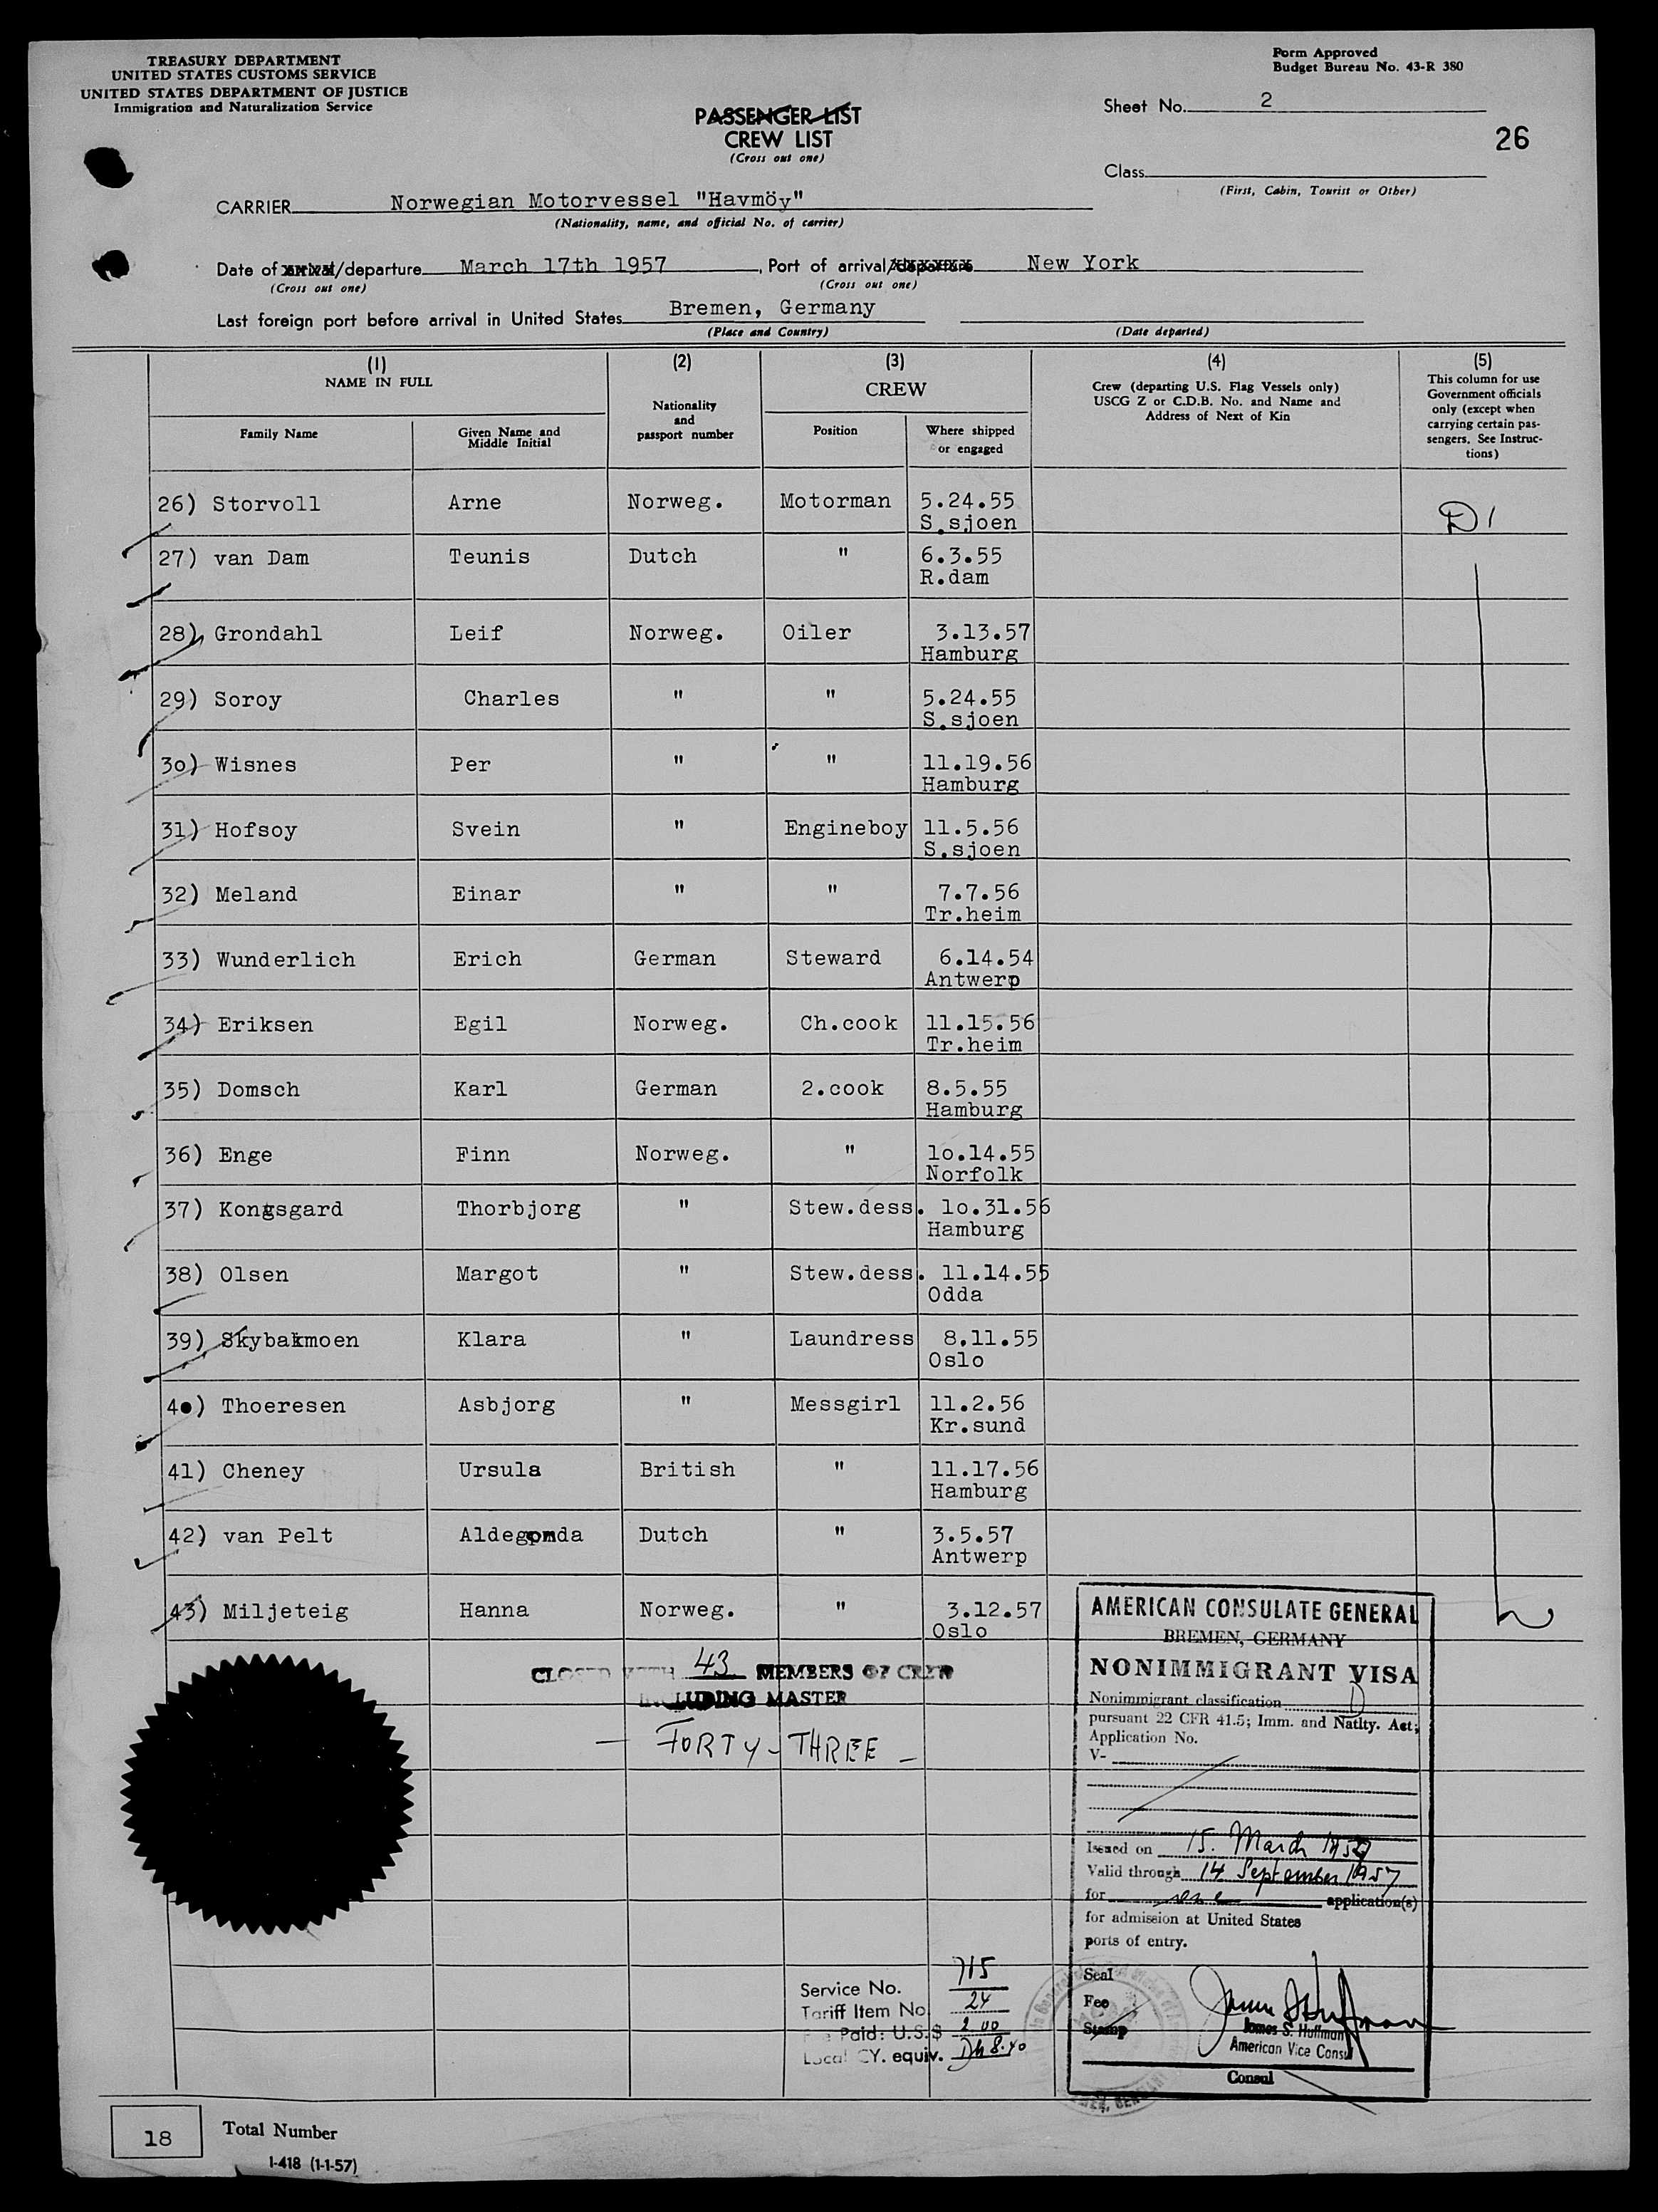 TREASURY DEPARTMENT
UNITED STATES CUSTOMS SERVICE
UNITED STATES DEPARTMENT OF JUSTICE
Immigration and Naturalization Service
Form Approved
Budget Bureau No. 43-R 380
Sheet No. 2
26
PASSENGER LIST
CREW LIST
(Cross out one)
Class
(First, Cabin, Tourist or Other)
CARRIER Norwegian Motorvessel "Havmöy"
(Nationality, name, and official No. of carrier)
Date of arrival/departure March 17th 1957, Port of arrival/departure New York
(Cross out one) (Cross out one)
Last foreign port before arrival in United States Bremen, Germany
(Place and Country) (Date departed)
(1) (2) (3) (4) (5)
NAME IN FULL
Family Name
Given Name and
Middle Initial
Nationality
and
passport number
CREW
Position
Where shipped
or engaged
Crew (departing U.S. Flag Vessels only)
USCG Z or C.D.B. No. and Name and
Address of Next of Kin
This column for use
Government officials
only (except when
carrying certain pas-
sengers. See Instruc-
tions)
26) Storvoll Arne Norweg. Motorman 5.24.55
S.sjoen
D1
27) van Dam Teunis Dutch " 6.3.55
R.dam
28) Grondahl Leif Norweg. Oiler 3.13.57
Hamburg
29) Soroy Charles " " 5.24.55
S.sjoen
3o) Wisnes Per " " 11.19.56
Hamburg
31) Hofsoy Svein " Engineboy 11.5.56
S.sjoen
32) Meland Einar " " 7.7.56
Tr.heim
33) Wunderlich Erich German Steward 6.14.54
Antwerp
34) Eriksen Egil Norweg. Ch.cook 11.15.56
Tr.heim
35) Domsch Karl German 2.cook 8.5.55
Hamburg
36) Enge Finn Norweg. " 1o.14.55
Norfolk
37) Kongsgard Thorbjorg " Stew.dess. 1o.31.56
Hamburg
38) Olsen Margot " Stew.dess. 11.14.55
Odda
39) Skybakmoen Klara " Laundress 8.11.55
Oslo
4o) Thoeresen Asbjorg " Messgirl 11.2.56
Kr.sund
41) Cheney Ursula British " 11.17.56
Hamburg
42) van Pelt Aldegonda Dutch " 3.5.57
Antwerp
43) Miljeteig Hanna Norweg. " 3.12.57
Oslo
CLOSED WITH 43 MEMBERS OF CREW
INCLUDING MASTER
— FORTY-THREE —
AMERICAN CONSULATE GENERAL
BREMEN, GERMANY
NONIMMIGRANT VISA
Nonimmigrant classification D
pursuant 22 CFR 41.5; Imm. and Natlty. Act;
Application No.
V-
Issued on 15. March 1957
Valid through 14 September 1957
for one application(s)
for admission at United States
ports of entry.
Seal
Fee
Stamp
James S. Huffman
American Vice Consul
Consul
Service No. 715
Tariff Item No. 24
Fee Paid: U.S.$ 2.00
Local CY. equiv. DM 8.40
18 Total Number
I-418 (1-1-57)